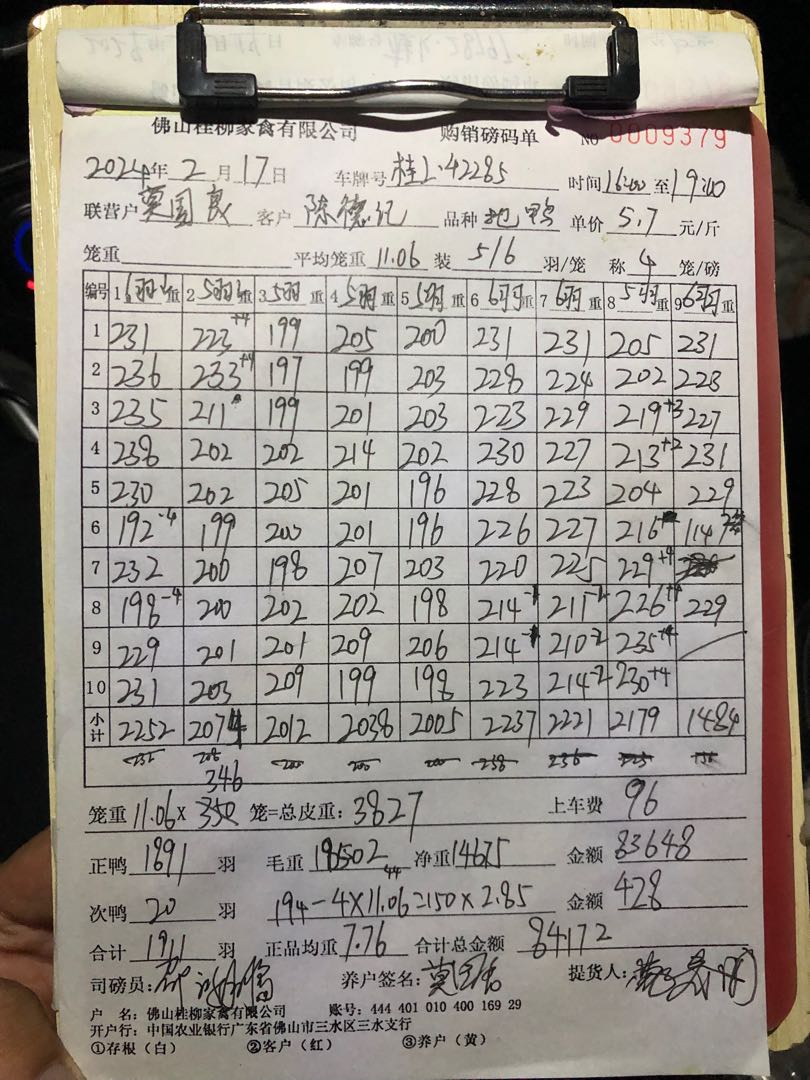 佛山桂柳家禽有限公司 购销磅码单 NO 0009379
2024年 2 月 17 日 车牌号 桂L·42285 时间 16:00 至 19:00
联营户 莫国良 客户 陈德记 品种 地鸭 单价 5.7 元/斤
笼重 平均笼重 11.06 装 5/6 羽/笼 称 4 笼/磅
编号 1 6羽 重 2 5羽 重 3 5羽 重 4 5羽 重 5 5羽 重 6 6羽 重 7 6羽 重 8 5羽 重 9 6羽 重
1 231 223+4 199 205 200 231 231 205 231
2 236 233+4 197 199 203 228 224 202 223
3 235 211 199 201 203 223 229 219+3 227
4 238 202 202 214 202 230 227 213+2 231
5 230 202 205 201 196 228 223 204 229
6 192-4 199 200 201 196 226 227 216 114
7 232 200 198 207 203 220 225 229+4
8 198-4 200 202 202 198 214 211-2 226+4 229
9 229 201 201 209 206 214 210-2 235+4
10 231 203 209 199 198 223 214-2 230+4
小计 2252 2074 2012 2038 2005 2237 2221 2179 1484
346
笼重 11.06 X 350 笼=总皮重: 3827 上车费 96
正鸭 1891 羽 毛重 18502 净重 14675 金额 83648
44
次鸭 20 羽 194-4X11.06=150X2.85 金额 428
合计 1911 羽 正品均重 7.76 合计总金额 84172
司磅员: 养户签名: 提货人:
户 名: 佛山桂柳家禽有限公司 账号: 444 401 010 400 169 29
开户行: 中国农业银行广东省佛山市三水区三水支行
①存根(白) ②客户(红) ③养户(黄)